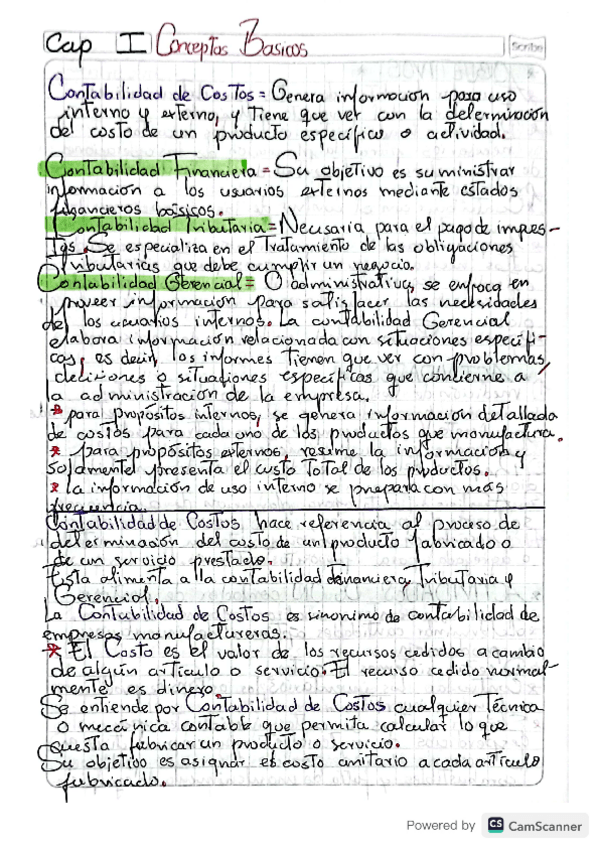 Cap I Conceptos Basicos
Scribe
Contabilidad de Costos = Genera información para uso
interno y externo, y tiene que ver con la determinación
del costo de un producto específico o actividad.
Contabilidad Financiera = Su objetivo es suministrar
información a los usuarios externos mediante estados
financieros básicos.
Contabilidad Tributaria = Necesaria para el pago de impues-
tos. Se especializa en el Tratamiento de las obligaciones
tributarias que debe cumplir un negocio.
Contabilidad Gerencial = O administrativa, se enfoca en
proveer información para satisfacer las necesidades
de los usuarios internos. La contabilidad Gerencial
elabora información relacionada con situaciones específi-
cas, es decir, los informes tienen que ver con problemas,
decisiones o situaciones específicas que concierne a
la administración de la empresa.
* para propósitos internos, se genera información detallada
de costos para cada uno de los productos que manufactura.
* para propósitos externos, resume la información y
solamente presenta el custo Total de los productos.
* la información de uso interno se prepara con más
frecuencia.
Contabilidad de Costos hace referencia al proceso de
determinación del costo de un producto fabricado o
de un servicio prestado.
Esta alimenta a lla contabilidad Financiera, Tributaria y
Gerencial.
La Contabilidad de Costos es sinonimo de contabilidad de
empresas manufactureras.
* El Costo es el valor de los recursos cedidos a cambio
de algún artículo o servicio. El recurso cedido normal-
mente es dinero.
Se entiende por Contabilidad de Costos cualquier Técnica
o mecánica contable que permita calcular lo que
cuesta fabricar un producto o servicio.
Su objetivo es asignar el costo unitario a cada artículo
fabricado.
Powered by CS CamScanner